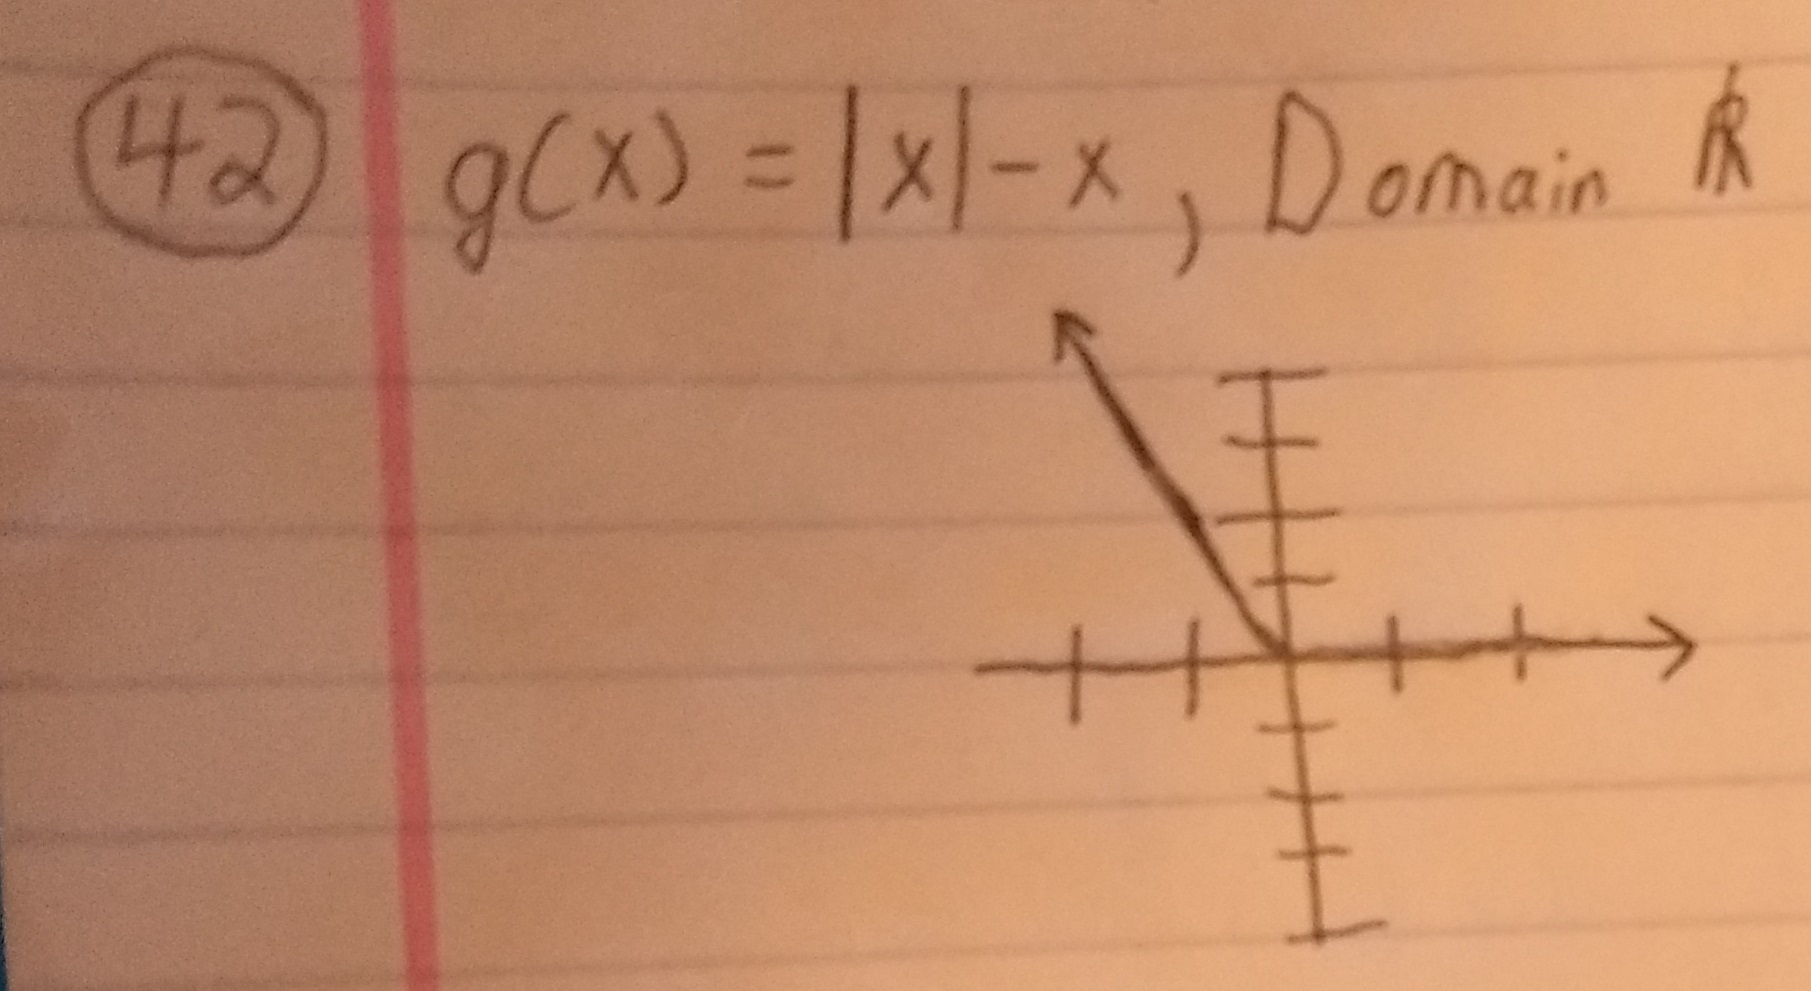 42 g(x) = |x| - x, Domain ℝ